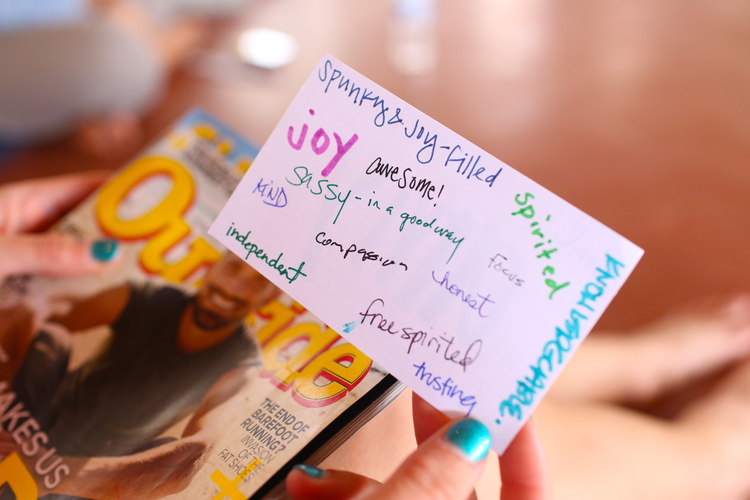 Spunky & Joy-filled
JOY
awesome!
Sassy - in a good way
KIND
spirited
independent
compassion
Focus
honest
KNOWLEDGEABLE.
free spirited
trusting
Outside
THE END OF
BAREFOOT
RUNNING?
INVASION
OF THE
FAT SHOES
MAKES US